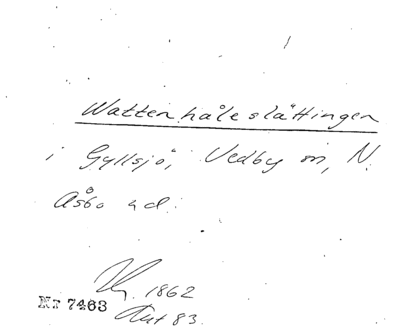 Wattenhåleslättingen
i Gyllsjö, Vedby sn, N.
Åsbo hd.
1862
NT 7463
Aut 83.